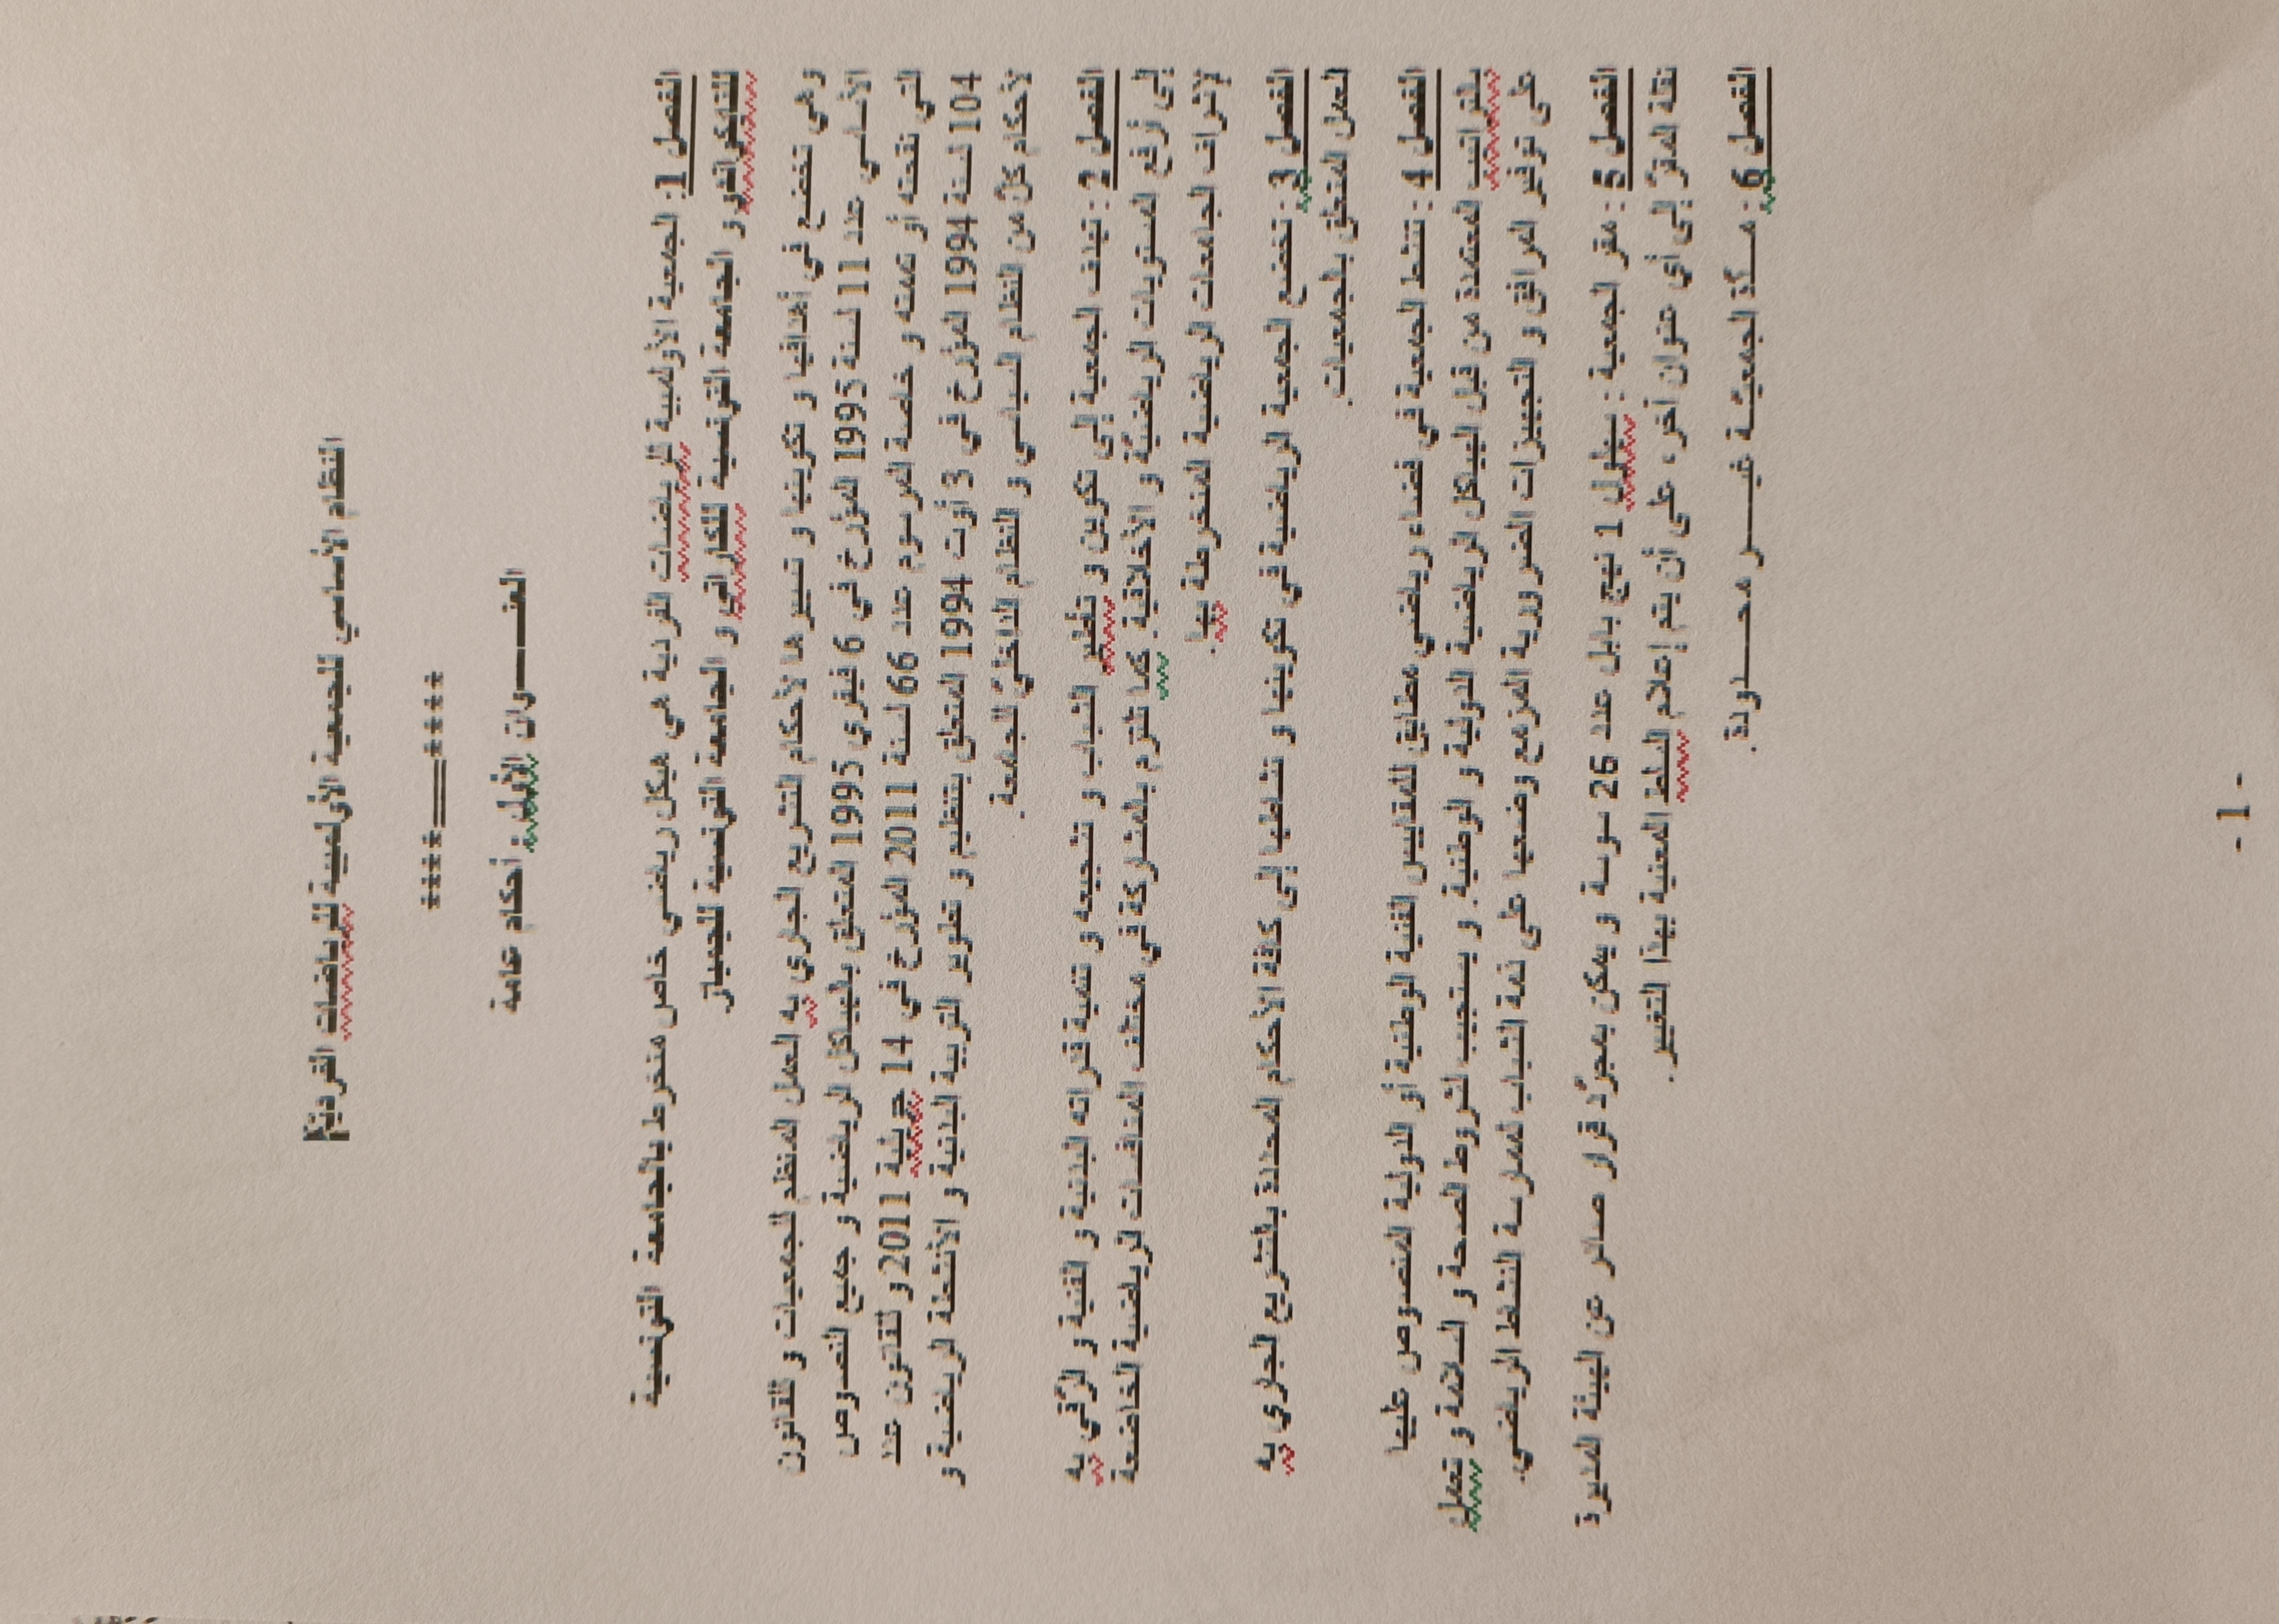 النظام الأساسي للجمعية الأولمبية للرياضات الفردية
****====****
العنـــــوان الأول: أحكام عامة
الفصل 1: الجمعية الأولمبية للرياضات الفردية هي هيكل رياضي خاص منخرط بالجامعة التونسية
للتايكواندو و الجامعة التونسية للكاراتي و الجامعة التونسية للجمباز.
وهي تخضع في أهدافها و تكوينها و تسييرها لأحكام التشريع الجاري به العمل المنظم للجمعيات و للقانون
الأساسي عدد 11 لسنة 1995 المؤرخ في 6 فيفري 1995 المتعلق بالهياكل الرياضية و جميع النصوص
التي نقحته أو تممته و خاصة المرسوم عدد 66 لسنة 2011 المؤرخ في 14 جويلية 2011 و للقانون عدد
104 لسنة 1994 المؤرخ في 3 أوت 1994 المتعلق بتنظيم و تطوير التربية البدنية و الأنشطة الرياضية و
لأحكام كلّ من النظام السياسي و النظام الداخليّ للجمعة.
الفصل 2 : تهدف الجمعية إلى تكوين و تأطير الشباب و تشجيعه و تنمية قدراته البدنية و الفنية و الرّقي به
إلى أرفع المستويات الرياضيّة و الأخلاقية. كما تلتزم بالمشاركة في مختلف المنافسات الرياضية الخاضعة
لإشراف الجامعات الرياضية المنخرطة بها.
الفصل 3: تخضع الجمعية الرياضية في تكوينها و نشاطها إلى كافة الأحكام المحددة بالتشريع الجاري به
العمل المتعلق بالجمعيات.
الفصل 4 : تنشط الجمعية في فضاء رياضي مطابق للمقاييس الفنية الوطنية أو الدولية المنصوص عليها
بالتراتيب المعتمدة من قبل الهياكل الرياضية الدولية و الوطنية. و يستجيب لشروط الصحة و السلامة و تعمل
على توفير المرافق و التجهيزات الضرورية المزمع وضعها على ذمة الشباب لممارسة النشاط الرياضي.
الفصل 5 : مقر الجمعية : سهلول 1 نهج بابل عدد 26 سوسة و يمكن بمجرّد قرار صادر عن الهيئة المديرة
نقلة المقرّ إلى أي عنوان آخر، على أن يتم إعلام السلط المعنية بهذا التغيير.
الفصل 6: مــدّة الجمعيّــة غيـــر محـــدودة.
- 1 -